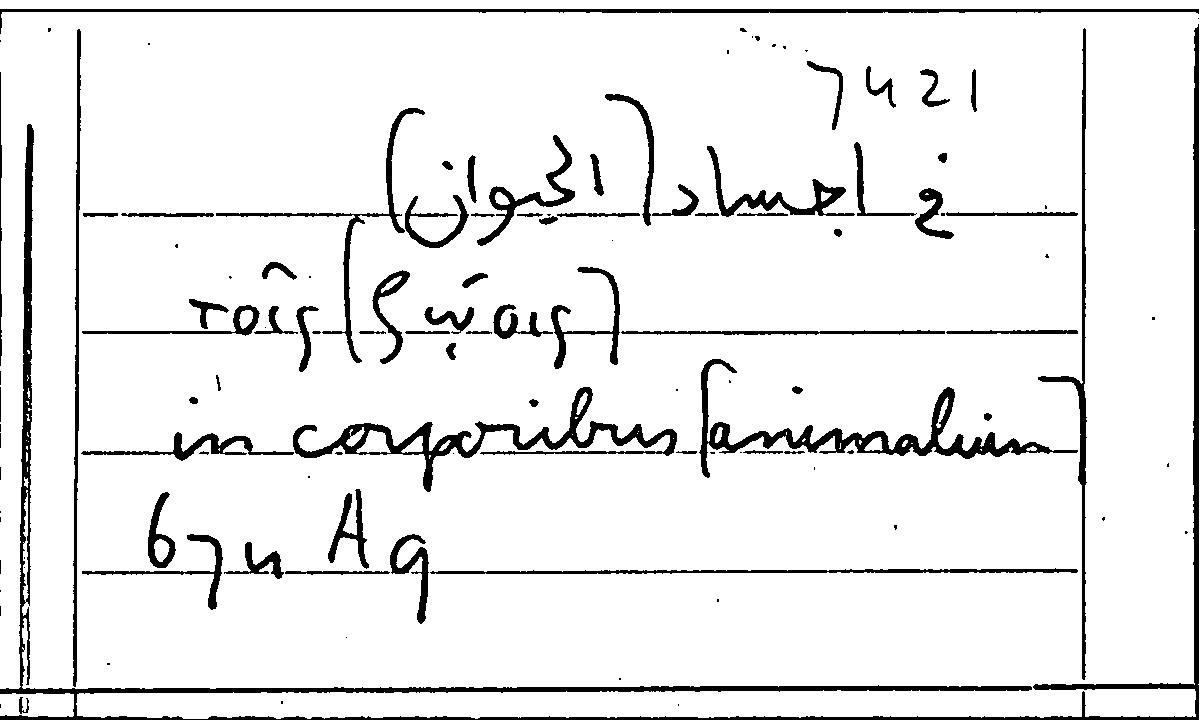 7421
في اجساد [الحيوان]
τοῖς [ζῴοις]
in corporibus [animalium]
674 A9